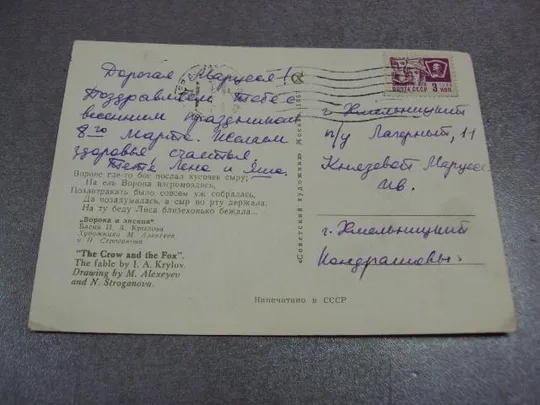 Дорогая Маруся!
Поздравляем тебя с
весенним праздником
8го Марта. Желаем
здоровья счастья
Тётя Лена и Яша.
Вороне где-то бог послал кусочек сыру;
На ель Ворона взгромоздясь,
Позавтракать было совсем уж собралась,
Да позадумалась, а сыр во рту держала.
На ту беду Лиса близехонько бежала...
„Ворона и лисица"
Басня И. А. Крылова
Художники М. Алексеев
и Н. Строганова
"The Crow and the Fox".
The fable by I. A. Krylov.
Drawing by M. Alexeyev
and N. Stroganova.
«Советский художник» Москва 1967
Напечатано в СССР
ПОЧТА СССР 3 КОП
г. Хмельницкий
п/у Лагерный, 11
Князевой Марусе
Ив.
г. Хмельницкий
Кондрашовы.